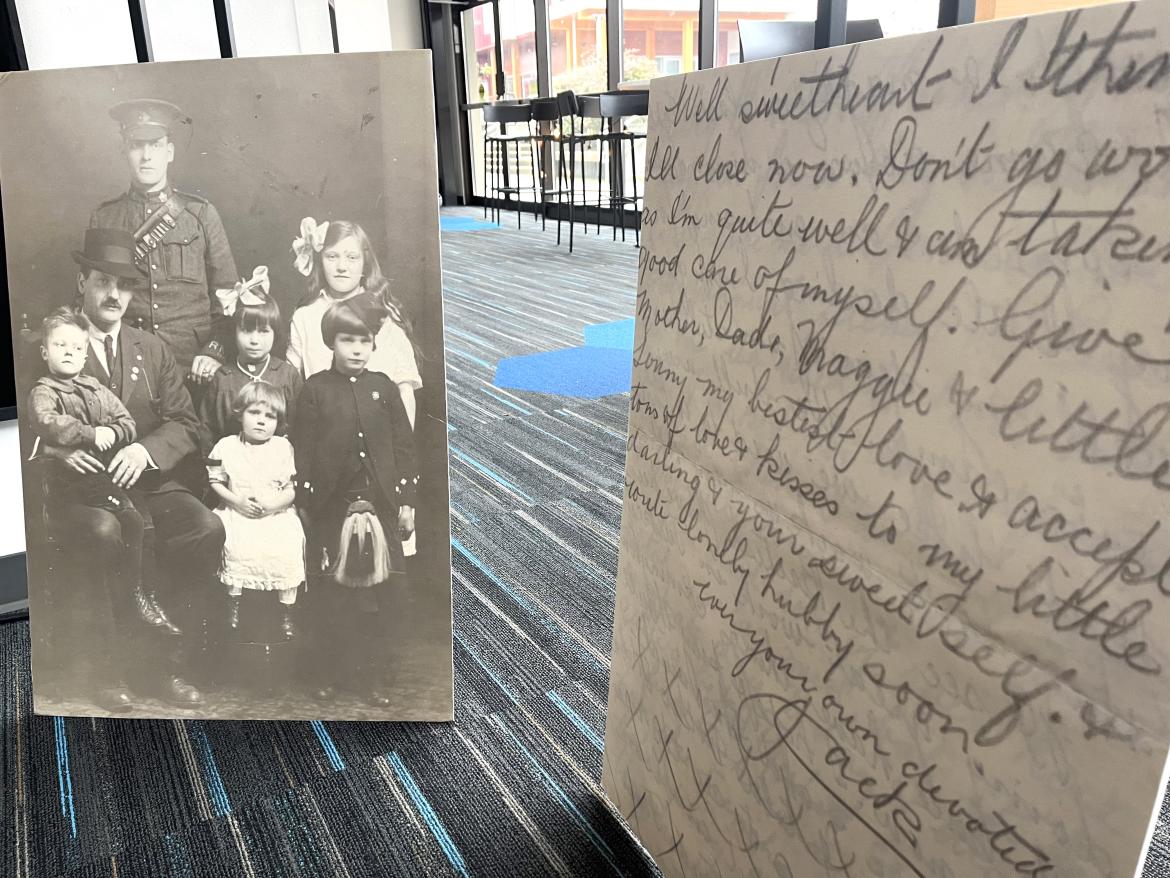 Well sweetheart I
close now. Don't go
as I'm quite well & am
good care of myself. Give
Mother, Dade, Maggie & little
Sonny my bestest love & accept
tons of love & kisses to my little
darling & your sweet self. &
write lonely hubby soon.
ever your own devoted
Jack
x x x
x x x
x x x